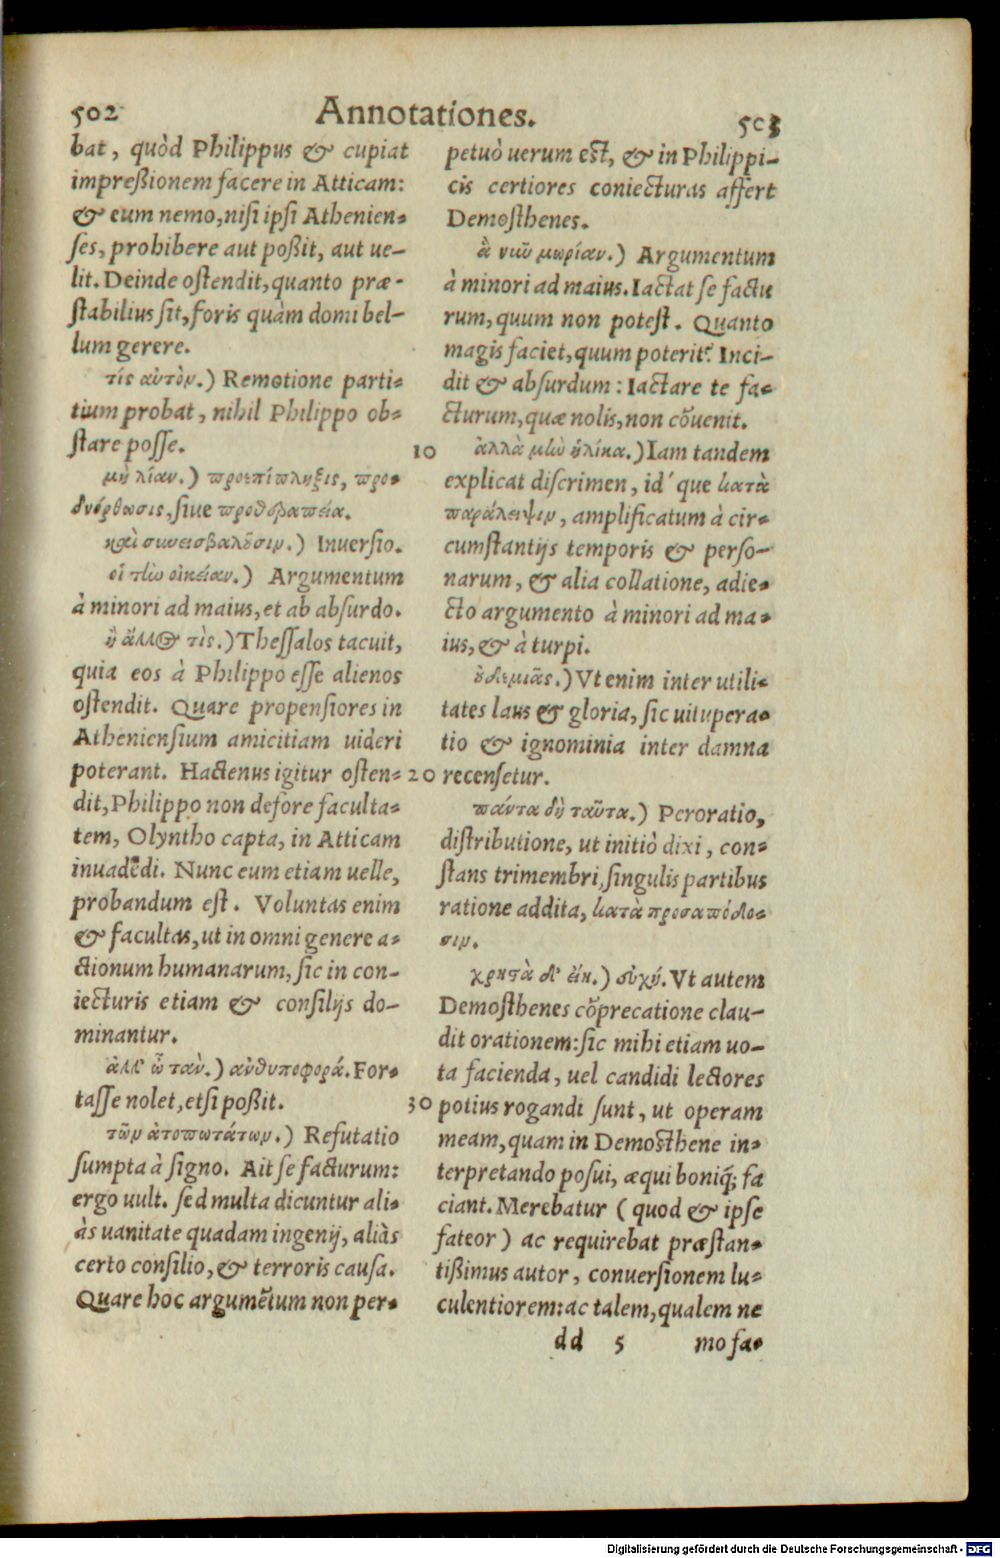 502 Annotationes. 503
bat, quòd Philippus & cupiat
impreßionem facere in Atticam:
& eum nemo, nisi ipsi Athenien-
ses, prohibere aut poßit, aut ue-
lit. Deinde ostendit, quanto præ-
stabilius sit, foris quàm domi bel-
lum gerere.
τίς αὐτὸν.) Remotione parti-
tium probat, nihil Philippo ob-
stare posse.
μὴ λίαν.) προεπίπληξις, προ-
διόρθωσις, siue προθεραπεία.
καὶ συνεισβαλοῦσιν.) Inuersio.
οἱ τὴν οἰκείαν.) Argumentum
à minori ad maius, et ab absurdo.
ἢ ἄλλος τὶς.) Thessalos tacuit,
quia eos à Philippo esse alienos
ostendit. Quare propensiores in
Atheniensium amicitiam uideri
poterant. Hactenus igitur osten-
dit, Philippo non defore faculta-
tem, Olyntho capta, in Atticam
inuadēdi. Nunc eum etiam uelle,
probandum est. Voluntas enim
& facultas, ut in omni genere a-
ctionum humanarum, sic in con-
iecturis etiam & consilijs do-
minantur.
ἀλλ' ὦ τὰν.) ἀνθυποφορά. For-
tasse nolet, etsi poßit.
τῶν ἀτοπωτάτων.) Refutatio
sumpta à signo. Ait se facturum:
ergo uult. sed multa dicuntur ali-
às uanitate quadam ingenij, aliàs
certo consilio, & terroris causa.
Quare hoc argumētum non per-
petuò uerum est, & in Philippi-
cis certiores coniecturas affert
Demosthenes.
ἃ νῦν μωρίαν.) Argumentum
à minori ad maius. Iactat se factu
rum, quum non potest. Quanto
magis faciet, quum poterit? Inci-
dit & absurdum: Iactare te fa-
cturum, quæ nolis, non cōuenit.
10 ἀλλὰ μὴν ἡλίκα.) Iam tandem
explicat discrimen, id'que κατὰ
παράλειψιν, amplificatum à cir-
cumstantijs temporis & perso-
narum, & alia collatione, adie-
cto argumento à minori ad ma-
ius, & à turpi.
οὐδεμιᾶς.) Vt enim inter utili-
tates laus & gloria, sic uitupera-
tio & ignominia inter damna
20 recensetur.
πάντα δὴ ταῦτα.) Peroratio,
distributione, ut initiò dixi, con-
stans trimembri, singulis partibus
ratione addita, κατὰ προσαπόδο-
σιν.
χρηστὰ δ' εἴη.) εὐχή. Vt autem
Demosthenes cōprecatione clau-
dit orationem: sic mihi etiam uo-
ta facienda, uel candidi lectores
30 potius rogandi sunt, ut operam
meam, quam in Demosthene in-
terpretando posui, æqui boniq́; fa
ciant. Merebatur (quod & ipse
fateor) ac requirebat præstan-
tißimus autor, conuersionem lu-
culentiorem: ac talem, qualem ne
dd 5 mo fa-
Digitalisierung gefördert durch die Deutsche Forschungsgemeinschaft - DFG